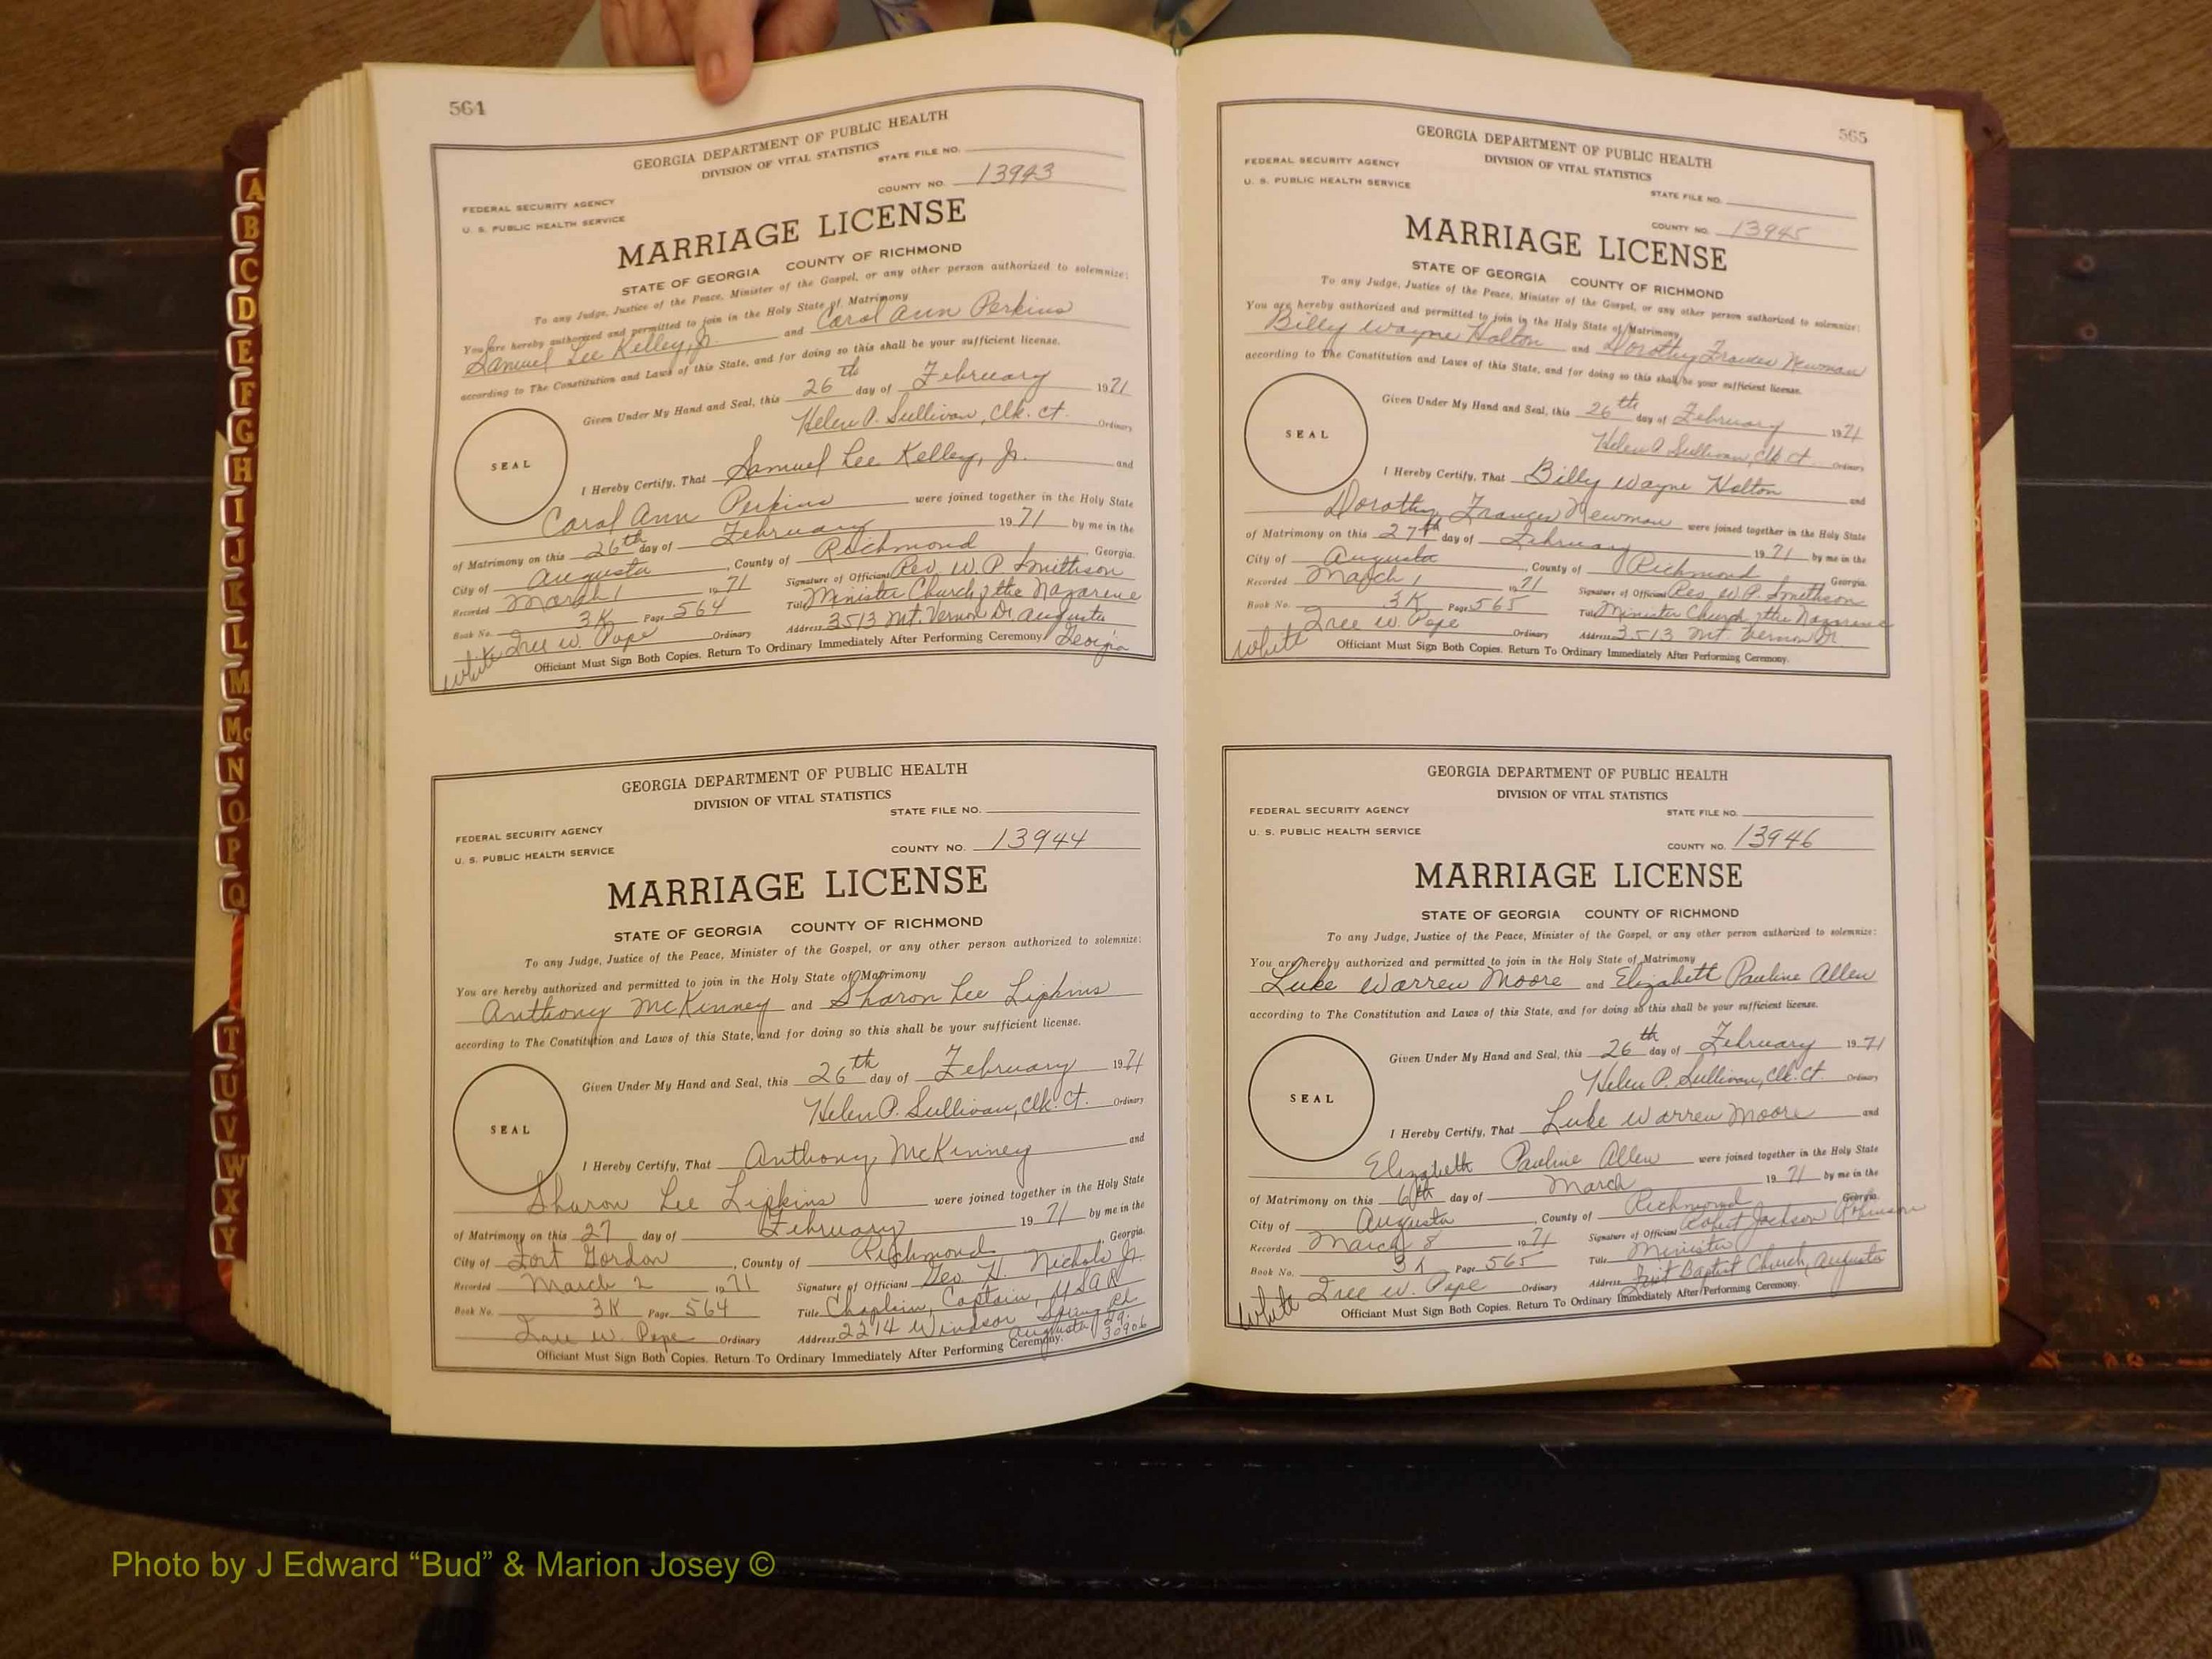 564
GEORGIA DEPARTMENT OF PUBLIC HEALTH
DIVISION OF VITAL STATISTICS
STATE FILE NO.
COUNTY NO. 13943
FEDERAL SECURITY AGENCY
U. S. PUBLIC HEALTH SERVICE
MARRIAGE LICENSE
STATE OF GEORGIA COUNTY OF RICHMOND
To any Judge, Justice of the Peace, Minister of the Gospel, or any other person authorized to solemnize:
You are hereby authorized and permitted to join in the Holy State of Matrimony
Samuel Lee Kelley, Jr. and Carol Ann Perkins
according to The Constitution and Laws of this State, and for doing so this shall be your sufficient license.
Given Under My Hand and Seal, this 26th day of February 1971
Helen P. Sullivan, Clk. Ct. Ordinary
SEAL
I Hereby Certify, That Samuel Lee Kelley, Jr. and
Carol Ann Perkins were joined together in the Holy State
of Matrimony on this 26th day of February 1971 by me in the
City of Augusta, County of Richmond, Georgia.
Recorded March 1 1971 Signature of Officiant Rev. W. P. Smithson
Book No. 3K Page 564 Title Minister Church of the Nazarene
Iree W. Pope Ordinary Address 3513 Mt. Vernon Dr. Augusta
Georgia
white
Officiant Must Sign Both Copies. Return To Ordinary Immediately After Performing Ceremony
GEORGIA DEPARTMENT OF PUBLIC HEALTH
DIVISION OF VITAL STATISTICS
STATE FILE NO.
FEDERAL SECURITY AGENCY
U. S. PUBLIC HEALTH SERVICE
COUNTY NO. 13944
MARRIAGE LICENSE
STATE OF GEORGIA COUNTY OF RICHMOND
To any Judge, Justice of the Peace, Minister of the Gospel, or any other person authorized to solemnize:
You are hereby authorized and permitted to join in the Holy State of Matrimony
Anthony McKinney and Sharon Lee Lipkins
according to The Constitution and Laws of this State, and for doing so this shall be your sufficient license.
Given Under My Hand and Seal, this 26th day of February 1971
Helen P. Sullivan, Clk. Ct. Ordinary
SEAL
I Hereby Certify, That Anthony McKinney and
Sharon Lee Lipkins were joined together in the Holy State
of Matrimony on this 27 day of February 1971 by me in the
City of Fort Gordon, County of Richmond, Georgia.
Recorded March 2 1971 Signature of Officiant Geo. H. Nichols Jr.
Book No. 3K Page 564 Title Chaplain, Captain, USAR
Iree W. Pope Ordinary Address 2214 Windsor Spring Rd.
Augusta, Ga. 30906
Officiant Must Sign Both Copies. Return To Ordinary Immediately After Performing Ceremony.
565
GEORGIA DEPARTMENT OF PUBLIC HEALTH
DIVISION OF VITAL STATISTICS
FEDERAL SECURITY AGENCY
U. S. PUBLIC HEALTH SERVICE
STATE FILE NO.
COUNTY NO. 13945
MARRIAGE LICENSE
STATE OF GEORGIA COUNTY OF RICHMOND
To any Judge, Justice of the Peace, Minister of the Gospel, or any other person authorized to solemnize:
You are hereby authorized and permitted to join in the Holy State of Matrimony
Billy Wayne Holton and Dorothy Frances Newman
according to The Constitution and Laws of this State, and for doing so this shall be your sufficient license.
Given Under My Hand and Seal, this 26th day of February 1971
Helen P. Sullivan, Clk. Ct. Ordinary
SEAL
I Hereby Certify, That Billy Wayne Holton and
Dorothy Frances Newman were joined together in the Holy State
of Matrimony on this 27th day of February 1971 by me in the
City of Augusta, County of Richmond, Georgia.
Recorded March 1 1971 Signature of Officiant Rev. W. P. Smithson
Book No. 3K Page 565 Title Minister Church of the Nazarene
Iree W. Pope Ordinary Address 3513 Mt. Vernon Dr.
white
Officiant Must Sign Both Copies. Return To Ordinary Immediately After Performing Ceremony.
GEORGIA DEPARTMENT OF PUBLIC HEALTH
DIVISION OF VITAL STATISTICS
FEDERAL SECURITY AGENCY
STATE FILE NO.
U. S. PUBLIC HEALTH SERVICE
COUNTY NO. 13946
MARRIAGE LICENSE
STATE OF GEORGIA COUNTY OF RICHMOND
To any Judge, Justice of the Peace, Minister of the Gospel, or any other person authorized to solemnize:
You are hereby authorized and permitted to join in the Holy State of Matrimony
Luke Warren Moore and Elizabeth Pauline Allen
according to The Constitution and Laws of this State, and for doing so this shall be your sufficient license.
Given Under My Hand and Seal, this 26th day of February 1971
Helen P. Sullivan, Clk. Ct. Ordinary
SEAL
I Hereby Certify, That Luke Warren Moore and
Elizabeth Pauline Allen were joined together in the Holy State
of Matrimony on this 6th day of March 1971 by me in the
City of Augusta, County of Richmond, Georgia.
Recorded March 8 1971 Signature of Officiant Robert Jackson Robinson
Book No. 3K Page 565 Title Minister
Iree W. Pope Ordinary Address First Baptist Church, Augusta
white
Officiant Must Sign Both Copies. Return To Ordinary Immediately After Performing Ceremony.
A
B
C
D
E
F
G
H
I
J
K
L
M
Mc
N
O
P
Q
T
U
V
W
X
Y
Photo by J Edward “Bud” & Marion Josey ©